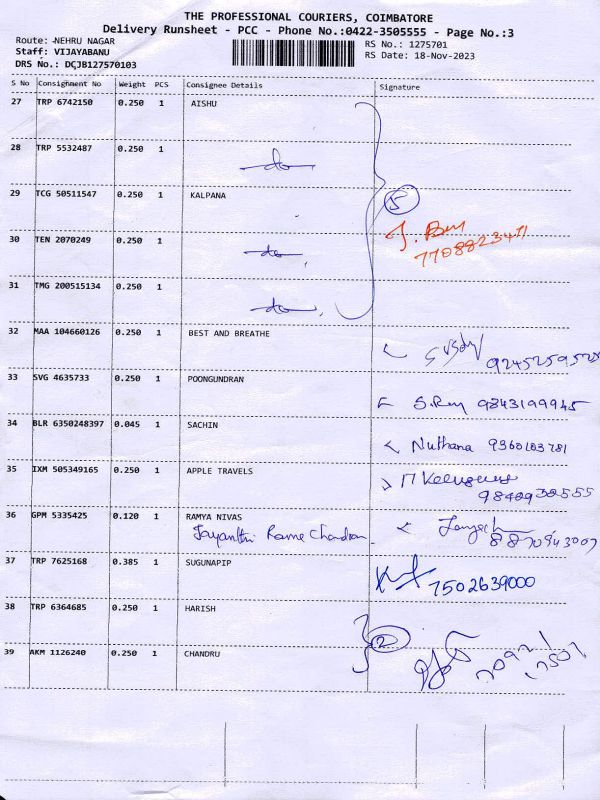 THE PROFESSIONAL COURIERS, COIMBATORE
Delivery Runsheet - PCC - Phone No.:0422-3505555 - Page No.:3
Route: -NEHRU NAGAR
RS No.: 1275701
Staff: VIJAYABANU
RS Date: 18-Nov-2023
DRS No.: DCJB127570103
S No Consignment No Weight PCS Consignee Details Signature
27 TRP 6742150 0.250 1 AISHU
28 TRP 5532487 0.250 1 do
29 TCG 50511547 0.250 1 KALPANA
5
30 TEN 2070249 0.250 1 do
7708823471
31 TMG 200515134 0.250 1 do
32 MAA 104660126 0.250 1 BEST AND BREATHE
9245259528
33 SVG 4635733 0.250 1 POONGUNDRAN
S.Rey 9843199945
34 BLR 6350248397 0.045 1 SACHIN
Nuthana 9360103781
35 IXM 505349165 0.250 1 APPLE TRAVELS
9840930555
36 GPM 5335425 0.120 1 RAMYA NIVAS
Jayanthi Rame Chandran
8870943007
37 TRP 7625168 0.385 1 SUGUNAPIP
7502639000
38 TRP 6364685 0.250 1 HARISH
2
39 AKM 1126240 0.250 1 CHANDRU